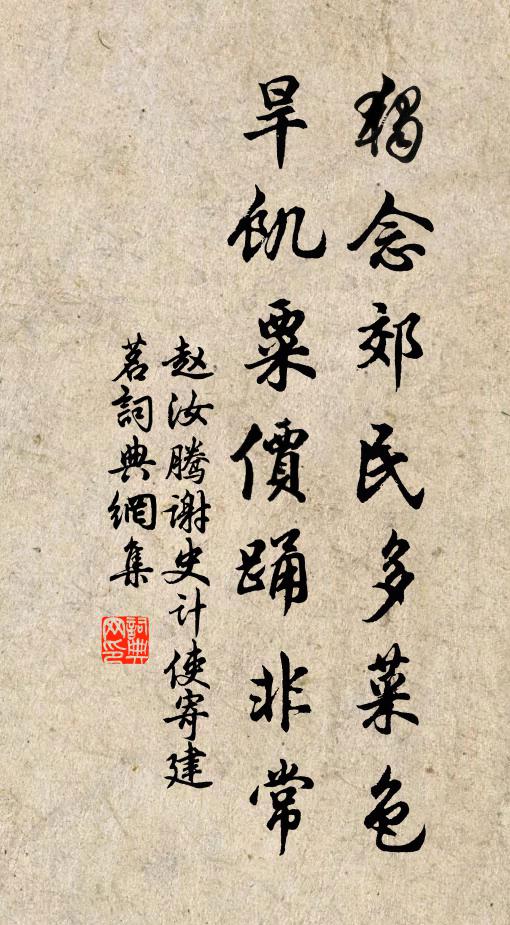 獨念郊民多菜色
旱飢粟價踊非常
赵汝腾谢史计使寄建
茗詞典網集
詞典網印